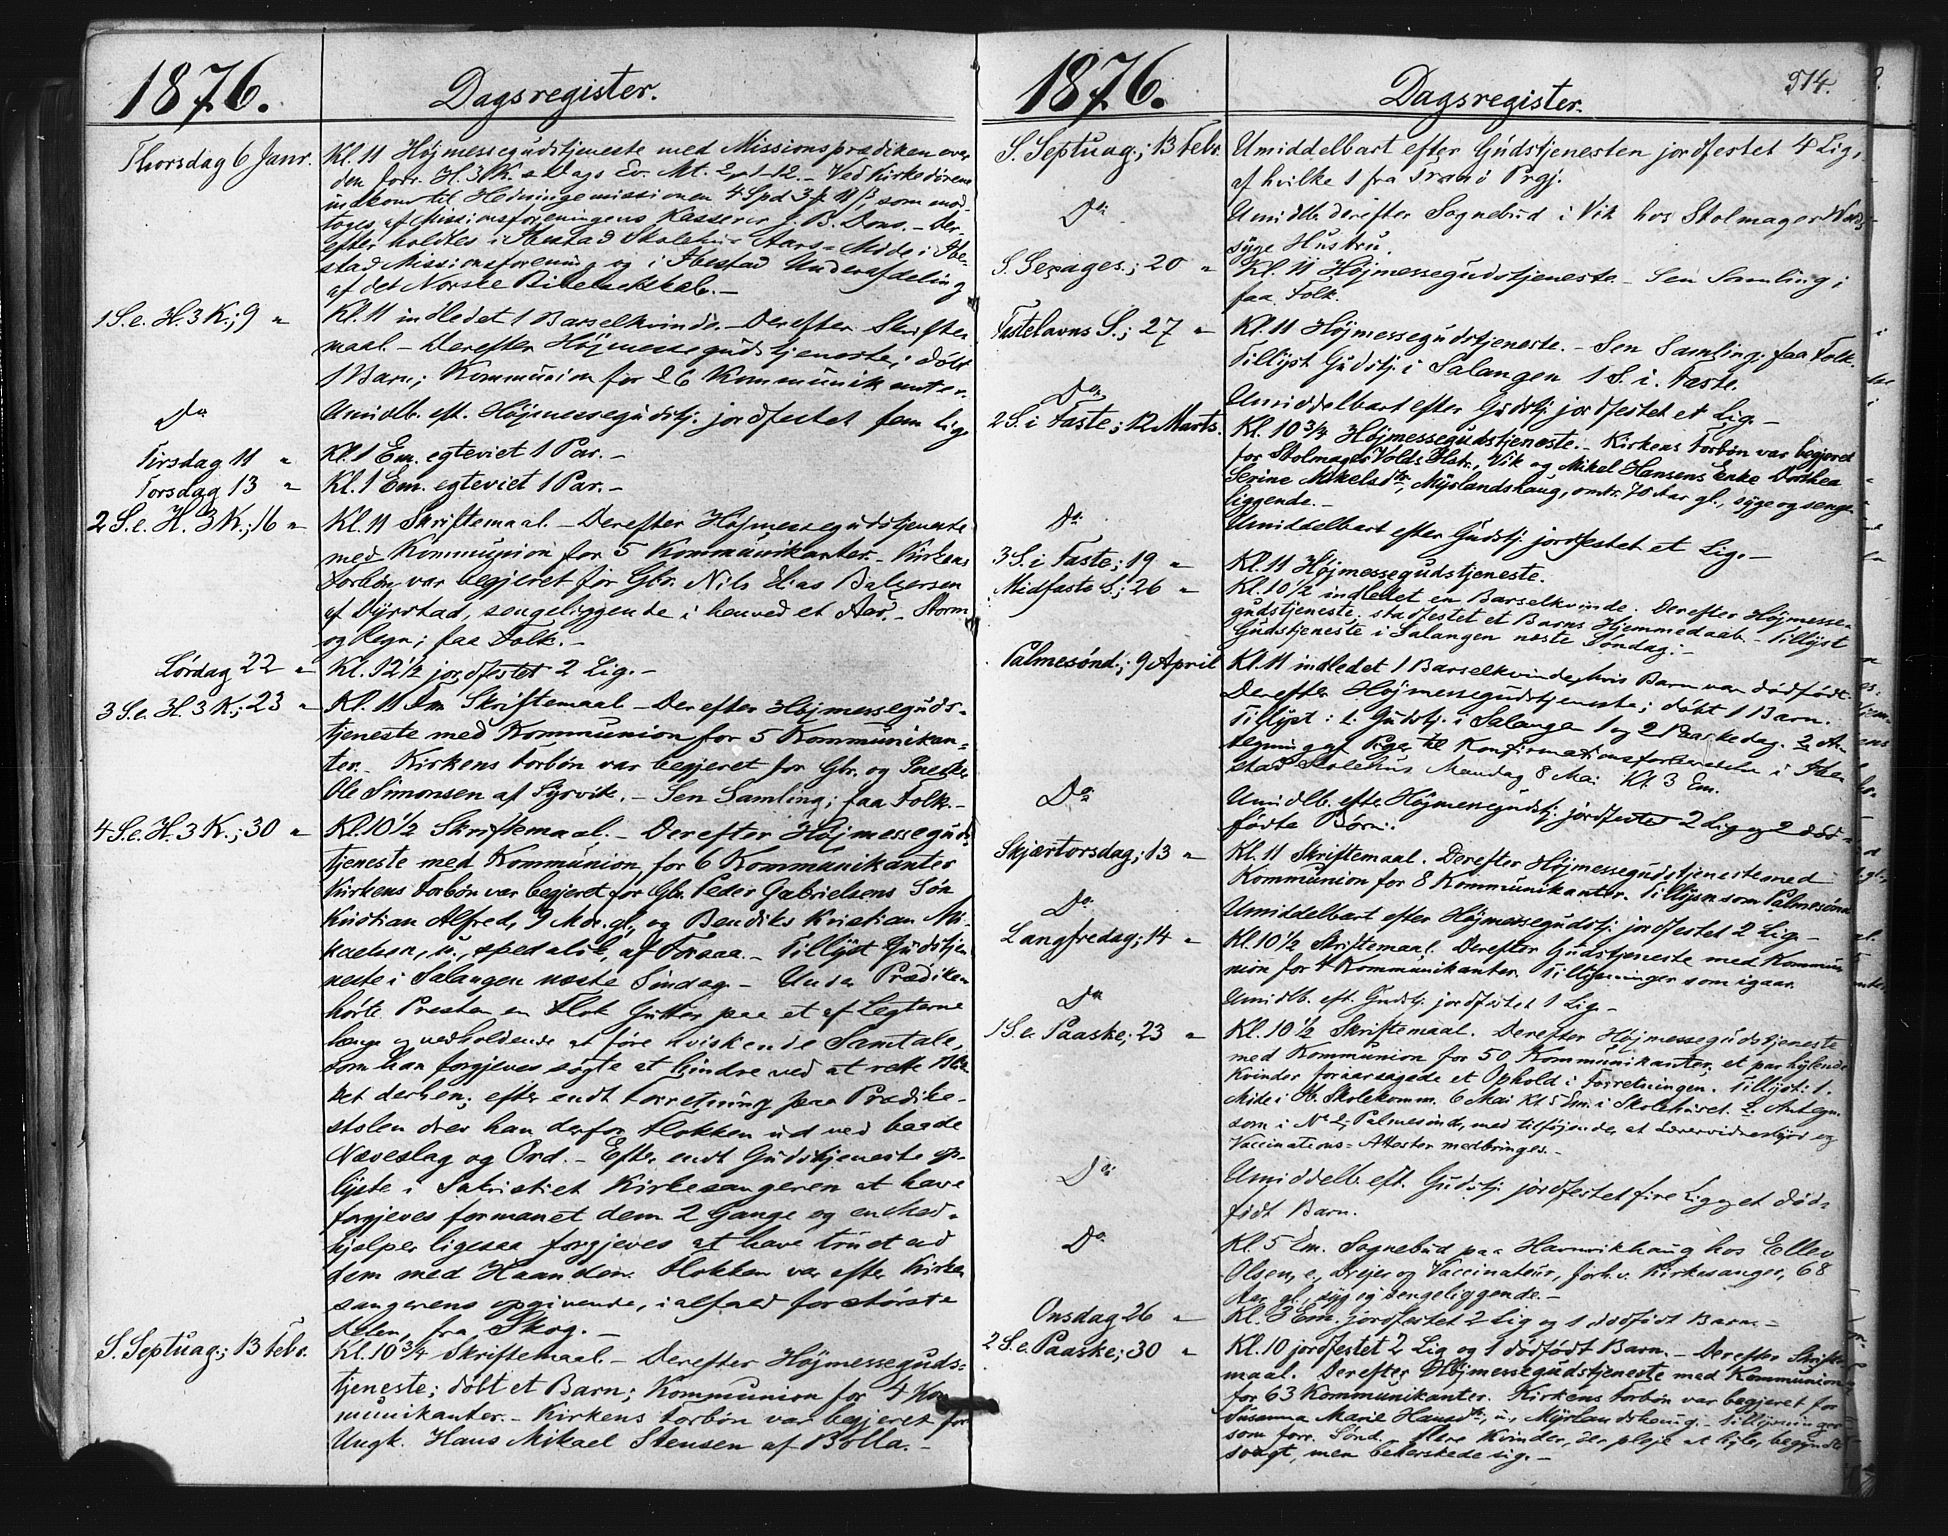 1876.
Dagsregister.
Thorsdag 6 Janr.
Kl. 11 Højmessegudstjeneste med Missionsprædiken over
den forr. H. 3 K. s Dags Ev. Mt. 2, 1-12. – Ved Kirkedørene
indkom til Hedningemissionen 4 Spd 3 11 β, som mod-
toges af Missionsforeningens Kasserer J. B. Dons. – Der-
efter holdtes i Ibestad Skolehus Aars-Møde i Ibe-
stad Missionsforening og i Ibestad Underafdeling
af det Norske Bibelselskab. –
1 S. e. H. 3 K.; 9 "
Kl. 11 indledet 1 Barselkvinde. – Derefter Skrifte-
maal. – Derefter Højmessegudstjeneste; døbt
1 Barn; Kommunion for 26 Kommunikanter.
Do
Umidlb. eft. Højmessegudstj. jordfestet fem Lig.
Tirsdag 11 "
Kl. 1 Em. egteviet 1 Par. –
Torsdag 13 "
Kl. 1 Em. egteviet 1 Par. –
2 S. e. H. 3 K.; 16 "
Kl. 11 Skriftemaal. – Derefter Højmessegudstjeneste
med Kommunion for 5 Kommunikanter. – Kirkens
Forbøn var begjeret for Gbr. Nils Elias Balzersen
af Dyrstad, sengeliggende i henved et Aar. – Storm
og Regn; faa Folk. –
Lørdag 22 "
Kl. 12½ jordfestet 2 Lig. –
3 S. e. H. 3 K.; 23 "
Kl. 11 Fm. Skriftemaal. – Derefter Højmesseguds-
tjeneste med Kommunion for 5 Kommunikan-
ter. – Kirkens Forbøn var begjeret for Gbr. og Snedker
Ole Simonsen af Sørvik. – Sen Samling; faa Folk. –
4 S. e. H. 3 K.; 30 "
Kl. 10½ Skriftemaal. – Derefter Højmesseguds-
tjeneste med Kommunion for 6 Kommunikanter
Kirkens Forbøn var begjeret for Gbr. Peder Gabrielsens Søn
Kristian Alfred, 9 Mdr. gl., og Bendiks Kristian Mi-
kaelsen, u., spedalsk, af Foraa. – Tillyst Gudstje-
neste i Salangen næste Søndag. – Under Prædiken
hørte Presten en Flok Gutter paa et af Legterne
længe og vedholdende at føre hviskende Samtale,
som han forgjeves søgte at hindre ved at rette Blik-
ket derhen; efter endt Forretning paa Prædike-
stolen drev han derfor Flokken ud ved baade
Næveslag og Ord. – Efter endt Gudstjeneste op-
lyste i Sakristiet Kirkesangeren at have
forgjeves formanet dem 2 Gange og en Med-
hjelper ligesaa forgjeves at have truet ad
dem med Haanden. Flokken var efter Kirke-
sangerens opgivende, i alfald for største
Delen, fra Skog. –
S. Septuag.; 13 Febr.
Kl. 10¾ Skriftemaal. – Derefter Højmesseguds-
tjeneste; døbt et Barn; Kommunion for 4 Kom-
munikanter. – Kirkens Forbøn var begjeret for
Ungk. Hans Mikael Stensen af Bolla. –
1876.
Dagsregister.
514.
S. Septuag.; 13 Febr.
Umiddelbart efter Gudstjenesten jordfestet 4 Lig,
af hvilke 1 fra Tranø Prgj.
Do
Umidlb. derefter Sognebud i Vik hos Stolmager Volds
syge Hustru.
S. Sexages.; 20 "
Kl. 11 Højmessegudstjeneste. – Sen Samling;
faa Folk.
Fastelavns S.; 27 "
Kl. 11 Højmessegudstjeneste. – Sen Samling; faa Folk.
Tillyst Gudstj. i Salangen 1 S. i Faste.
Do
Umiddelbart efter Gudstj. jordfestet et Lig. –
2 S. i Faste; 12 Marts.
Kl. 10¾ Højmessegudstjeneste. – Kirkens Forbøn var begjeret
for Stolmager Volds Hstr., Vik og Mikel Hansens Enke Dorthea
Serine Mikelsdtr., Myrlandshaug, omtr. 70 Aar gl., syge og senge-
liggende. –
Do
Umiddelbart efter Gudstj. jordfestet et Lig. –
3 S. i Faste; 19 "
Kl. 11 Højmessegudstjeneste.
Midfaste S.; 26 "
Kl. 10½ indledet en Barselkvinde. Derefter Højmesse-
gudstjeneste; stadfestet et Barns Hjemmedaab. – Tillyst
Gudstjeneste i Salangen næste Søndag. –
Palmesønd.; 9 April
Kl. 11 indledet 1 Barselkvinde, hvis Barn var dødfødt.
Derefter Højmessegudstjeneste; døbt 1 Barn.
Tillyst: 1. Gudstj. i Salangen 1 og 2 Paaskedag. 2. An-
tegning af Piger til Konfirmationsforberedelse i Ibe-
stad Skolehus Mandag 8 Mai Kl. 3 Em.
Do
Umidlb. efter Højmessegudstj. jordfestet 2 Lig og 2 død-
fødte Børn.
Skjærtorsdag; 13 "
Kl. 11 Skriftemaal. Derefter Højmessegudstjeneste med
Kommunion for 8 Kommunikanter. Tillysn. som Palmesønd.
Do
Umiddelbart efter Højmessegudstj. jordfestet 2 Lig. –
Langfredag; 14 "
Kl. 10½ Skriftemaal. Derefter Gudstjeneste med Kommu-
nion for 4 Kommunikanter. Tillysninger som igaar.
Do
Umidlb. eft. Gudstj. jordfestet 1 Lig. –
1 S. e. Paaske; 23 "
Kl. 10½ Skriftemaal. Derefter Højmessegudstjeneste
med Kommunion for 50 Kommunikanter; et par hylende
Kvinder foraarsagede et Ophold i Forretningen. Tillyst: 1.
Møde i Ib. Skolekomm. 6 Mai Kl. 5 Em. i Skolehuset. 2. Antegn.
som i No 2, Palmesønd., med tilføjende, at Lærervidnesbyrd og
Vaccinations-Attester medbringes. –
Do
Umiddelb. eft. Gudstj. jordfestet fire Lig og et død-
født Barn.
Do
Kl. 5 Em. Sognebud paa Havnvikhaug hos Elling
Olsen, e., Drejer og Vaccinateur, forh. v. Kirkesanger, 68
Aar gl., syg og sengeliggende. –
Onsdag 26 "
Kl. 3 Em. jordfestet 2 Lig og 1 dødfødt Barn. –
2 S. e. Paaske; 30 "
Kl. 10 jordfestet 2 Lig og 1 dødfødt Barn. – Derefter Skrifte-
maal. Derefter Højmessegudstjeneste med Kommunion
for 63 Kommunikanter. Kirkens Forbøn var begjeret for
Susanna Marie Hansdtr., u., Myrlandshaug. – Tillysninger
som forr. Sønd. Flere Kvinder, der pleje at hyle, begyndte
svagt, men beherskede sig. –